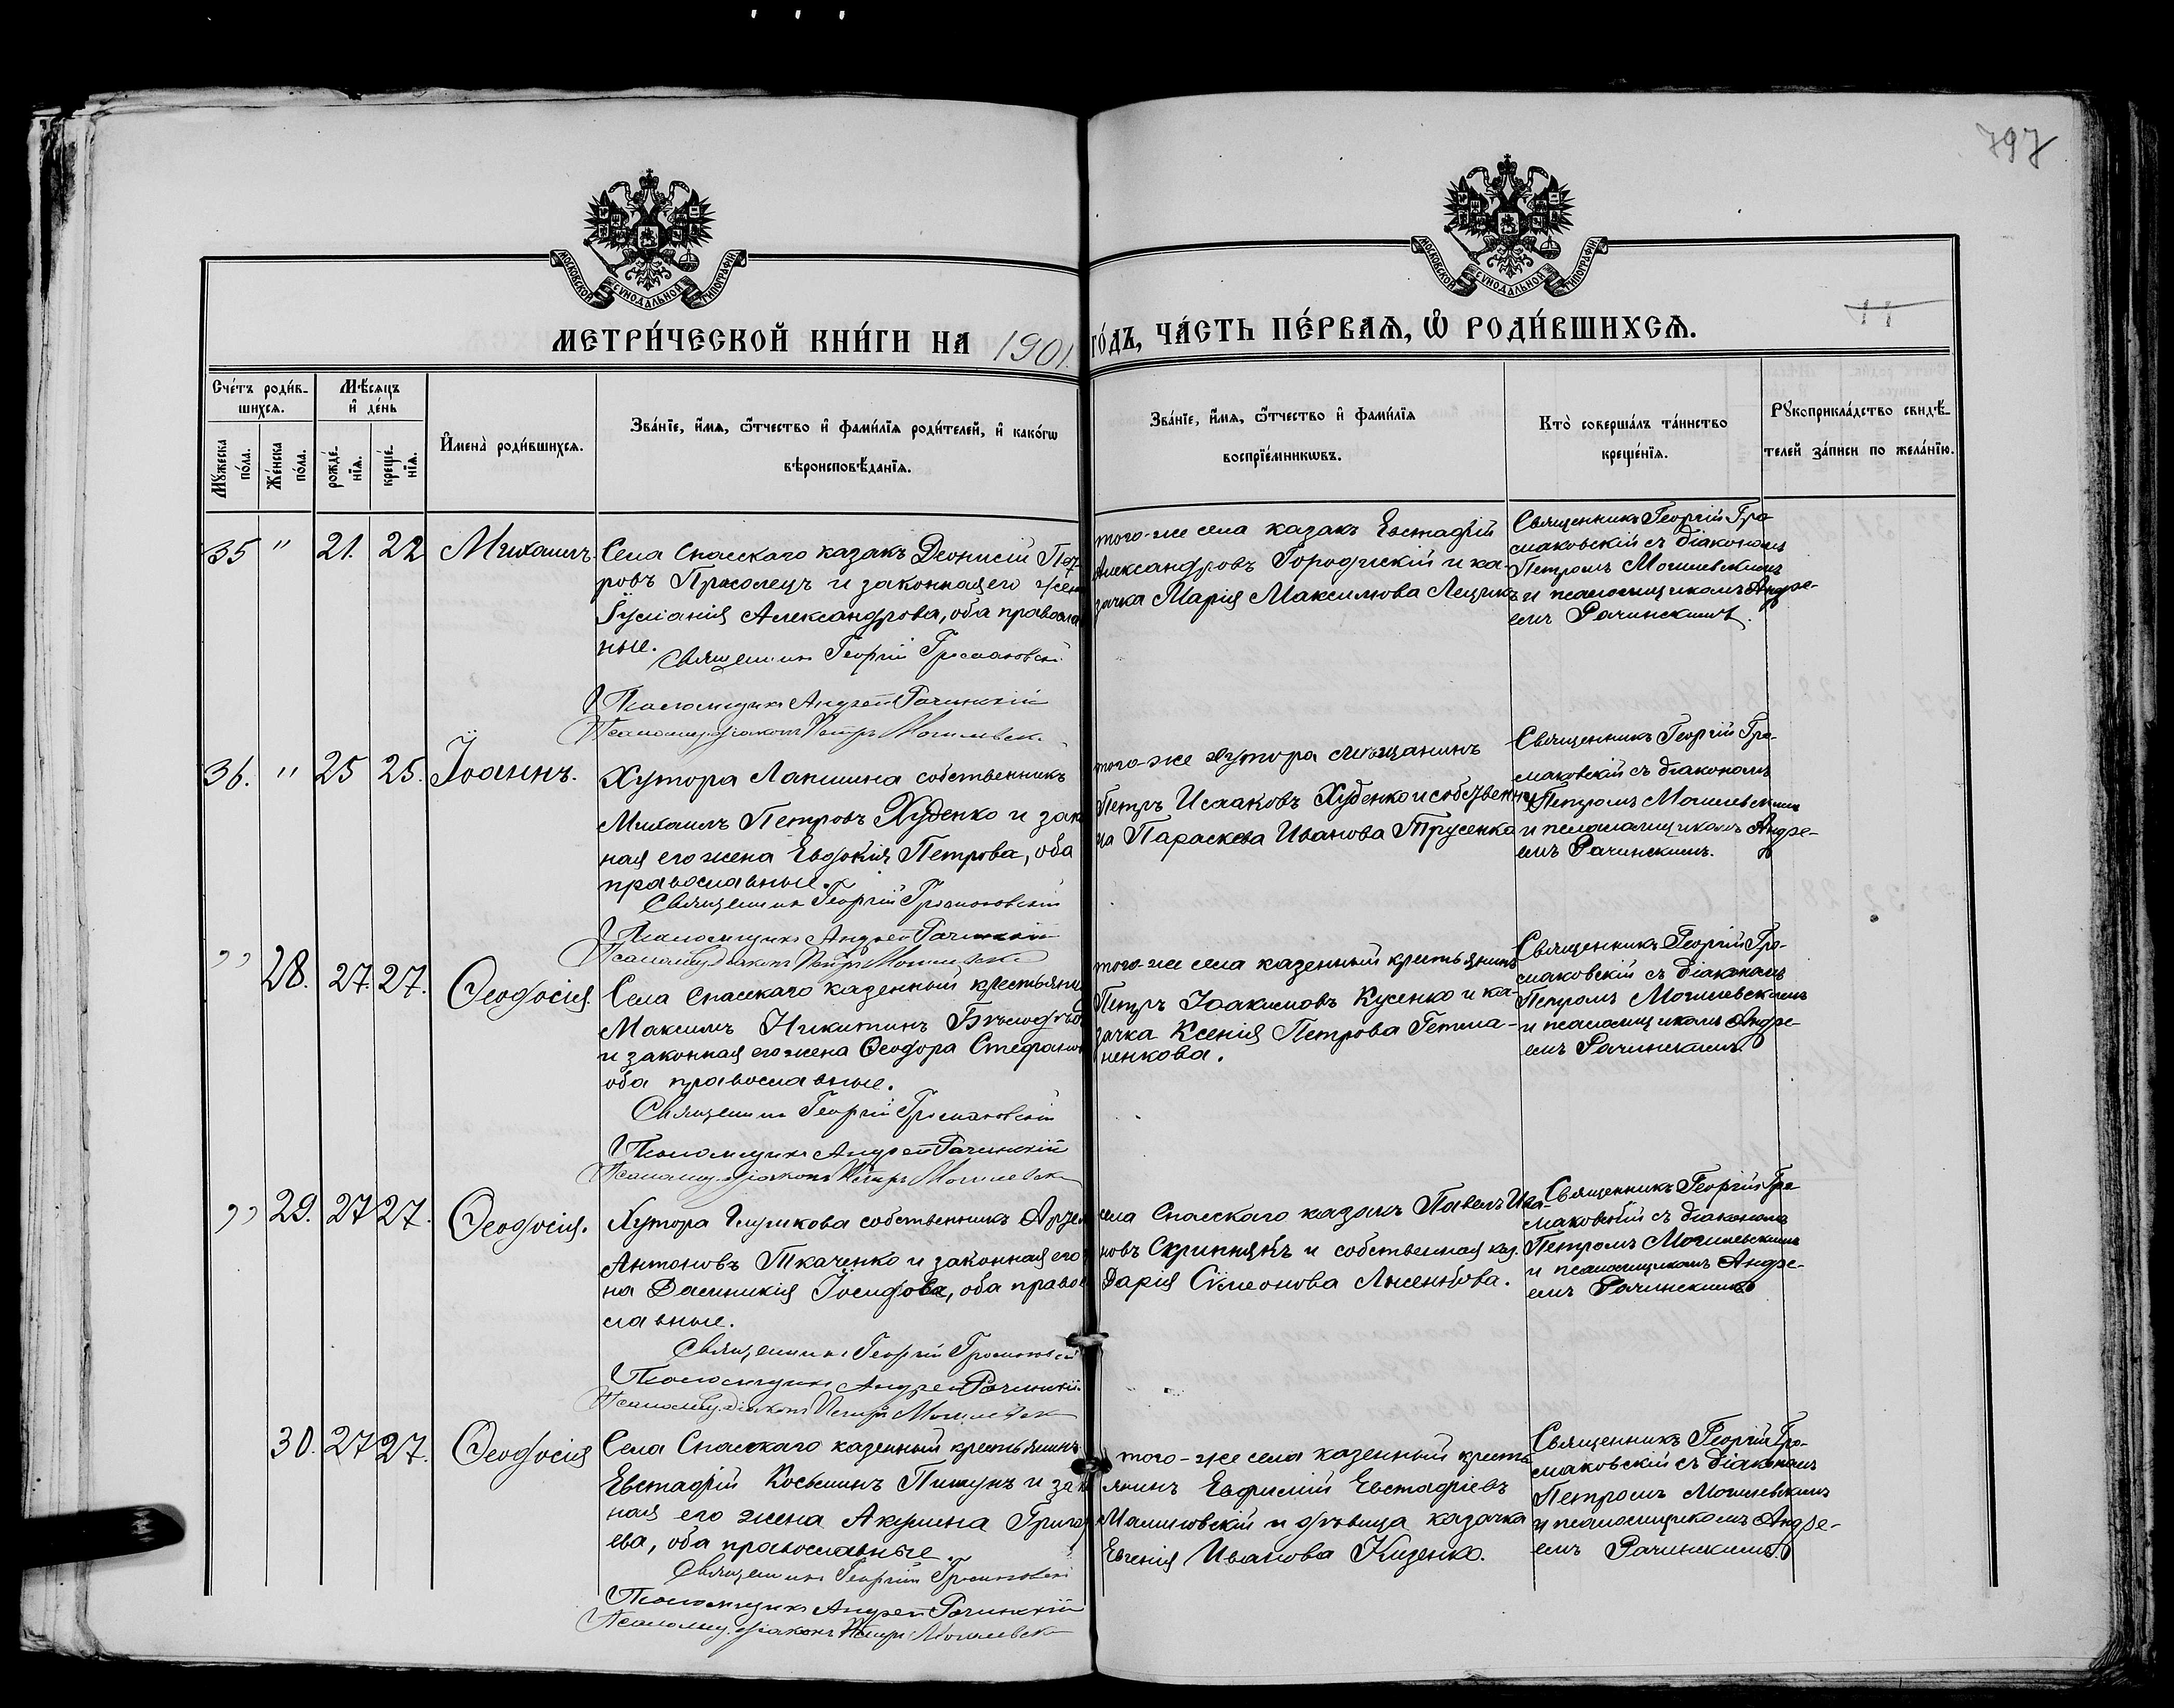 797
МОСКОВСКОЙ СѴНОДАЛЬНОЙ ТИПОГРАФІИ
МОСКОВСКОЙ СѴНОДАЛЬНОЙ ТИПОГРАФІИ
МЕТРИ́ЧЕСКОЙ КНИ́ГИ НА 1901.
ГО́ДЪ, ЧА́СТЬ ПЕ́РВАѦ, Ѿ РОДИ́ВШИХСѦ.
Сче́тъ роди́в-
шихсѧ.
Мꙋ́жеска
по́ла.
Же́нска
по́ла.
Мѣ́сѧцъ
и҆ де́нь
рожде́-
нїѧ.
креще́-
нїѧ.
И҆мена̀ роди́вшихсѧ.
Зва́нїе, и҆́мѧ, ѻ҆́тчество и҆ фами́лїѧ роди́телей, и҆ како́гѡ
вѣроисповѣ́данїѧ.
Зва́нїе, и҆́мѧ, ѻ҆́тчество и҆ фами́лїѧ
воспрїе́мникѡвъ.
Кто̀ соверша́лъ та́инство
креще́нїѧ.
Рꙋкоприкла́дство свидѣ́-
телей за́писи по жела́нїю.
35 " 21. 22 Михаилъ.
Села Спасскаго казакъ Деонисій Пет-
ровъ Просолецъ и законнащего жен
Іуліанія Александрова, оба правосла
ные.
Священникъ Георгій Громаковскі
Псаломщикъ Андрей Рачинскій
Псаломщ. діаконъ Петръ Могилевск
того-же села казакъ Евстафій
Александровъ Городискій и ка-
зачка Марія Максимова
Священникъ Георгій Гро
маковскій съ діакономъ
Петромъ Могилевскимъ
и псаломщикомъ Андре-
емъ Рачинскимъ.
36. " 25 25. Іоаннъ.
Хутора Лапшина собственникъ
Михаилъ Петровъ Худенко и зак
ная его жена Евдокія Петрова, оба
православные.
Священникъ Георгій Громаковскій
Псаломщикъ Андрей Рачинскій
Псаломщ. діаконъ Петръ Могилевск
того-же хутора мѣщанинъ
Петръ Исааковъ Худенко и собственни
ца Параскева Иванова Трусенка
Священникъ Георгій Гро-
маковскій съ діакономъ
Петромъ Могилевскимъ
и псаломщикомъ Андре-
емъ Рачинскимъ.
" 28. 27. 27. Ѳеодосія.
Села Спасскаго казенный крестьянин
Максимъ Никитинъ
и законная его жена Ѳеодора Стефанов
оба православные.
Священникъ Георгій Громаковскій
Псаломщикъ Андрей Рачинскій
Псаломщ. діаконъ Петръ Могилевск
того-же села казенный крестьянинъ
Петръ Іоакимовъ Кусенко и ка-
зачка Ксенія Петрова Гетма-
ненкова.
Священникъ Георгій Гро-
маковскій съ діакономъ
Петромъ Могилевскимъ
и псаломщикомъ Андре-
емъ Рачинскимъ.
" 29. 27 27. Ѳеодосія.
Хутора собственникъ
Антоновъ Ткаченко и законная его
на Домникія Іосифова, оба право
славные.
Священникъ Георгій Громаковскі
Псаломщикъ Андрей Рачинскій
Псаломщ. діаконъ Петръ Могилевск
села Спасскаго казакъ Павелъ Ива-
новъ Скрипнякъ и собственная каз.
Дарія Сімеонова Лысенкова.
Священникъ Георгій Гро
маковскій съ діакономъ
Петромъ Могилевскимъ
и псаломщикомъ Андре-
емъ Рачинскимъ
30. 27 27. Ѳеодосія
Села Спасскаго казенный крестьянинъ
Евстафій Косьминъ Пишунъ и зак
ная его жена Акулина Григор
ева, оба православные.
Священникъ Георгій Громаковскі
Псаломщикъ Андрей Рачинскій
Псаломщ. діаконъ Петръ Могилевск
того-же села казенный кресть
янинъ Евфимій Евстафіевъ
Малиновскій и дѣвица казачка
Евгенія Иванова Кизенко.
Священникъ Георгій Гро-
маковскій съ діакономъ
Петромъ Могилевскимъ
и псаломщикомъ Андре-
емъ Рачинскимъ.